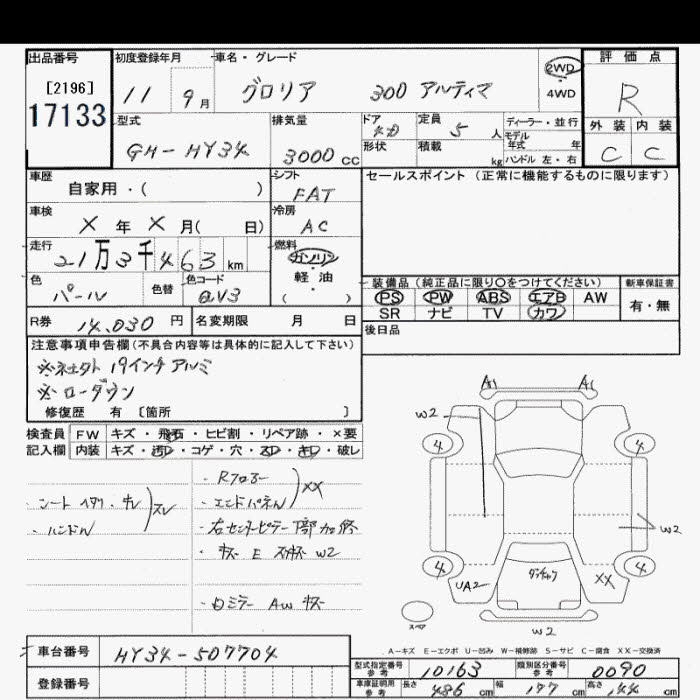 出品番号 初度登録年月 車名・グレード 2WD 4WD 評価点
[2196] 11 9月 グロリア 300 アルティマ R
17133
型式 排気量 ドア 定員 ディーラー・並行 外装 内装
GH-HY34 3000cc 4D 5人 モデル年式 年 C C
形状 積載 kg ハンドル 左・右
車歴 シフト セールスポイント（正常に機能するものに限ります）
自家用・( ) FAT
車検 冷房
X年X月( 日) AC
走行 燃料
21万3千463km ガソリン
軽油
( )
色 色替 色コード 装備品（純正品に限り○をつけてください） 新車保証書
パール QV3 PS PW ABS エアB AW 有・無
SR ナビ TV カワ
R券 14,030円 名変期限 月 日 後日品
注意事項申告欄（不具合内容等は具体的に記入して下さい）
※ネオクト 19インチアルミ
※ローダウン
修復歴 有 〔箇所 〕
検査員 FW キズ・飛石・ヒビ割・リペア跡・×要
記入欄 内装 キズ・汚D・コゲ・穴・スD・キD・破レ
・シート ヘタリ・ヤレ スレ
・ハンドル
・Rフロアー
・エンドパネル XX
・右センターピラー下部加修
・キズ E ステキズ W2
・白ミラー AW キズ
A1 A1
W2
4 4
W2
4 4
UA2 ダンチャク XX
スペア W2
A-キズ E-エクボ U-凹み W-補修跡 S-サビ C-腐食 XX-交換済
車台番号 HY34-507704
登録番号
型式指定番号 参考 10163 類別区分番号 参考 0090
車庫証明用 参考 長さ 486cm 幅 177cm 高さ 144cm